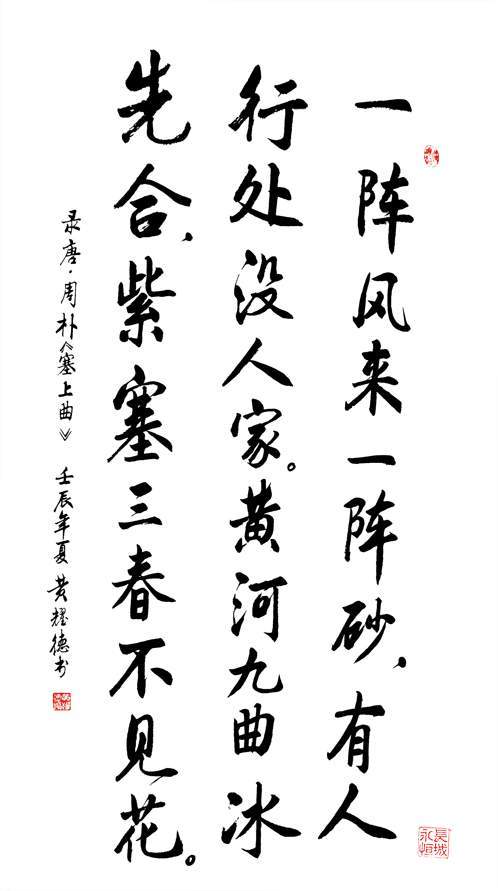 一阵风来一阵砂、有人
行处没人家。黄河九曲冰
先合、紫塞三春不见花。
录唐·周朴《塞上曲》 壬辰年夏 黄耀德书
长城永恒